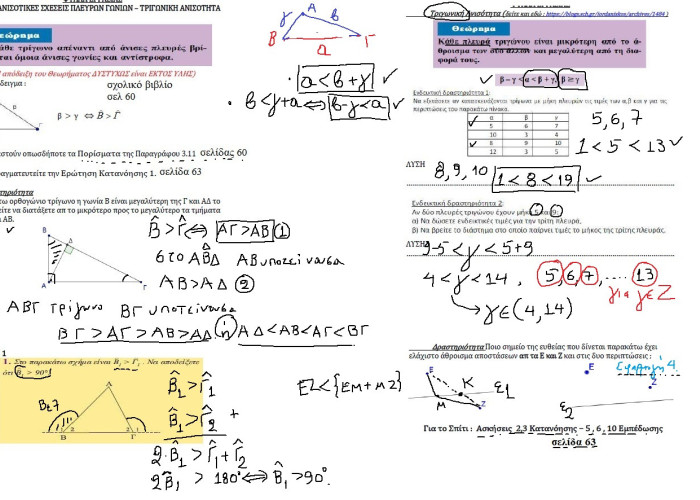 ΑΝΙΣΟΤΙΚΕΣ ΣΧΕΣΕΙΣ ΠΛΕΥΡΩΝ ΓΩΝΙΩΝ – ΤΡΙΓΩΝΙΚΗ ΑΝΙΣΟΤΗΤΑ
εώρημα
άθε τρίγωνο απέναντι από άνισες πλευρές βρί-
ται όμοια άνισες γωνίες και αντίστροφα.
απόδειξη του Θεωρήματος ΔΥΣΤΥΧΩΣ είναι ΕΚΤΟΣ ΥΛΗΣ)
δειγμα :
σχολικό βιβλίο
σελ 60
β > γ ⇔ B̂ > Γ̂
στούν οπωσδήποτε τα Πορίσματα της Παραγράφου 3.11 σελίδας 60
αγματευτείτε την Ερώτηση Κατανόησης 1. σελίδα 63
τηριότητα
τω ορθογώνιο τρίγωνο η γωνία Β είναι μεγαλύτερη της Γ και ΑΔ το
είτε να διατάξετε απ το μικρότερο προς το μεγαλύτερο τα τμήματα
ΑΒ.
Β
Δ
Α
Γ
B̂ > Γ̂ ⇔ ΑΓ > ΑΒ ①
στο ΑΒ̂Δ ΑΒ υποτείνουσα
ΑΒ > ΑΔ ②
ΑΒΓ τρίγωνο ΒΓ υποτείνουσα
ΒΓ > ΑΓ > ΑΒ > ΑΔ ή ΑΔ < ΑΒ < ΑΓ < ΒΓ
1
1. Στο παρακάτω σχήμα είναι B̂₁ > Γ̂₁. Να αποδείξετε
ότι B̂₁ > 90°
Α
Β
Γ
B̂₁ > Γ̂₁
B̂₁ > Γ̂₂ +
2·B̂₁ > Γ̂₁ + Γ̂₂
2B̂₁ > 180° ⇔ B̂₁ > 90°.
γ Α β
Β α Γ
α < β + γ
β < γ + α ⇔ β - γ < α
Τριγωνική Ανισότητα (δείτε και εδώ : https://blogs.sch.gr/iordaniskos/archives/1484 )
Θεώρημα
Κάθε πλευρά τριγώνου είναι μικρότερη από το ά-
θροισμα των δύο άλλων και μεγαλύτερη από τη δια-
φορά τους.
β – γ < α < β + γ, β ≥ γ
Ενδεικτική δραστηριότητα 1:
Να εξετάσετε αν κατασκευάζονται τρίγωνα με μήκη πλευρών τις τιμές των α,β και γ για τις
περιπτώσεις του παρακάτω πίνακα.
α β γ
5 6 7
10 3 4
8 9 10
12 3 5
5, 6, 7
1 < 5 < 13
ΛΥΣΗ
8, 9, 10
1 < 8 < 19
Ενδεικτική δραστηριότητα 2:
Αν δύο πλευρές τριγώνου έχουν μήκη 5 και 9 :
α) Να δώσετε ενδεικτικές τιμές για την τρίτη πλευρά,
β) Να βρείτε το διάστημα στο οποίο παίρνει τιμές το μήκος της τρίτης πλευράς.
ΛΥΣΗ
9-5 < γ < 5+9
4 < γ < 14 , 5, 6, 7, .... 13
για γ∈Z
γ∈(4,14)
Δραστηριότητα Ποιο σημείο της ευθείας που δίνεται παρακάτω έχει
ελάχιστο άθροισμα αποστάσεων απ τα Ε και Ζ και στις δυο περιπτώσεις :
ΕΖ < {ΕΜ + ΜΖ}
Ε
Κ
Μ
Ζ
ε1
Ε
Ζ
ε2
Για το Σπίτι : Ασκήσεις 2,3 Κατανόησης – 5 , 6 , 10 Εμπέδωσης
σελίδα 63